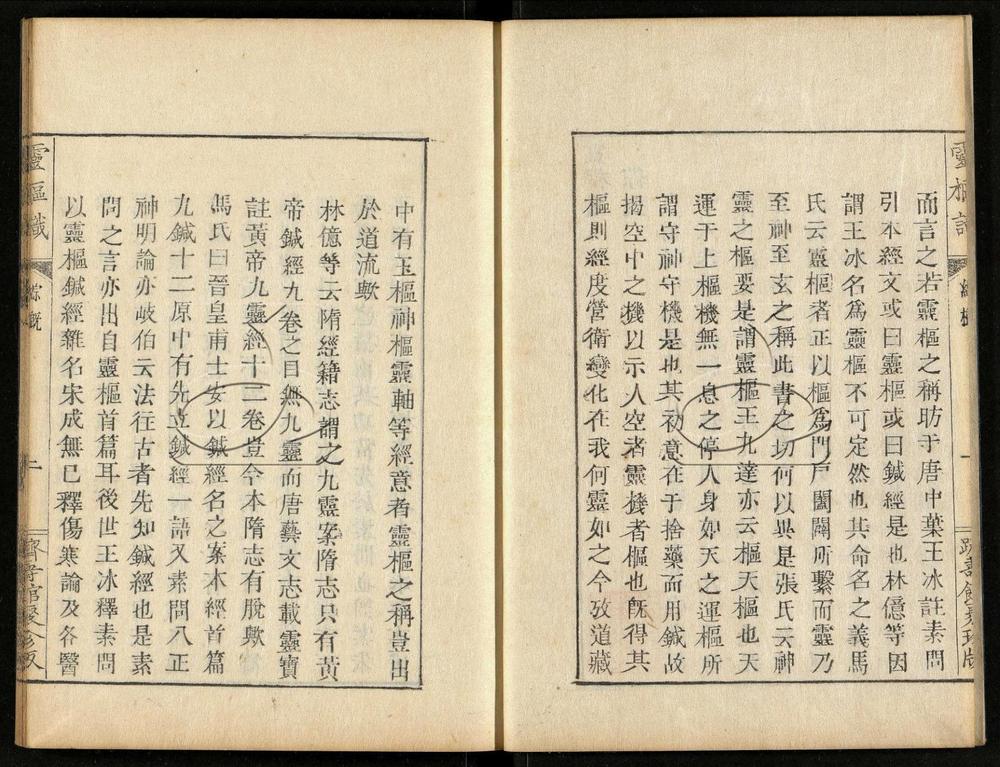 而言之若靈樞之稱昉于唐中葉王冰註素問
引本經文或曰靈樞或曰鍼經是也林億等因
謂王冰名爲靈樞不可定然也其命名之義馬
氏云靈樞者正以樞爲門戸闔闢所繫而靈乃
至神至玄之稱此書之切何以異是張氏云神
靈之樞要是謂靈樞王九達亦云樞天樞也天
運于上樞機無一息之停人身如天之運樞所
謂守神守機是也其初意在于捨藥而用鍼故
揭空中之機以示人空者靈機者樞也旣得其
樞則經度營衛變化在我何靈如之今攷道藏
中有玉樞神樞靈軸等經意者靈樞之稱豈出
於道流歟
林億等云隋經籍志謂之九靈案隋志只有黃
帝鍼經九卷之目無九靈而唐藝文志載靈寶
註黃帝九靈經十二卷豈今本隋志有脫歟
馬氏曰晉皇甫士安以鍼經名之案本經首篇
九鍼十二原中有先立鍼經一語又素問八正
神明論亦岐伯云法往古者先知鍼經也是素
問之言亦出自靈樞首篇耳後世王冰釋素問
以靈樞鍼經雜名宋成無已釋傷寒論及各醫
靈樞識
綜概
二